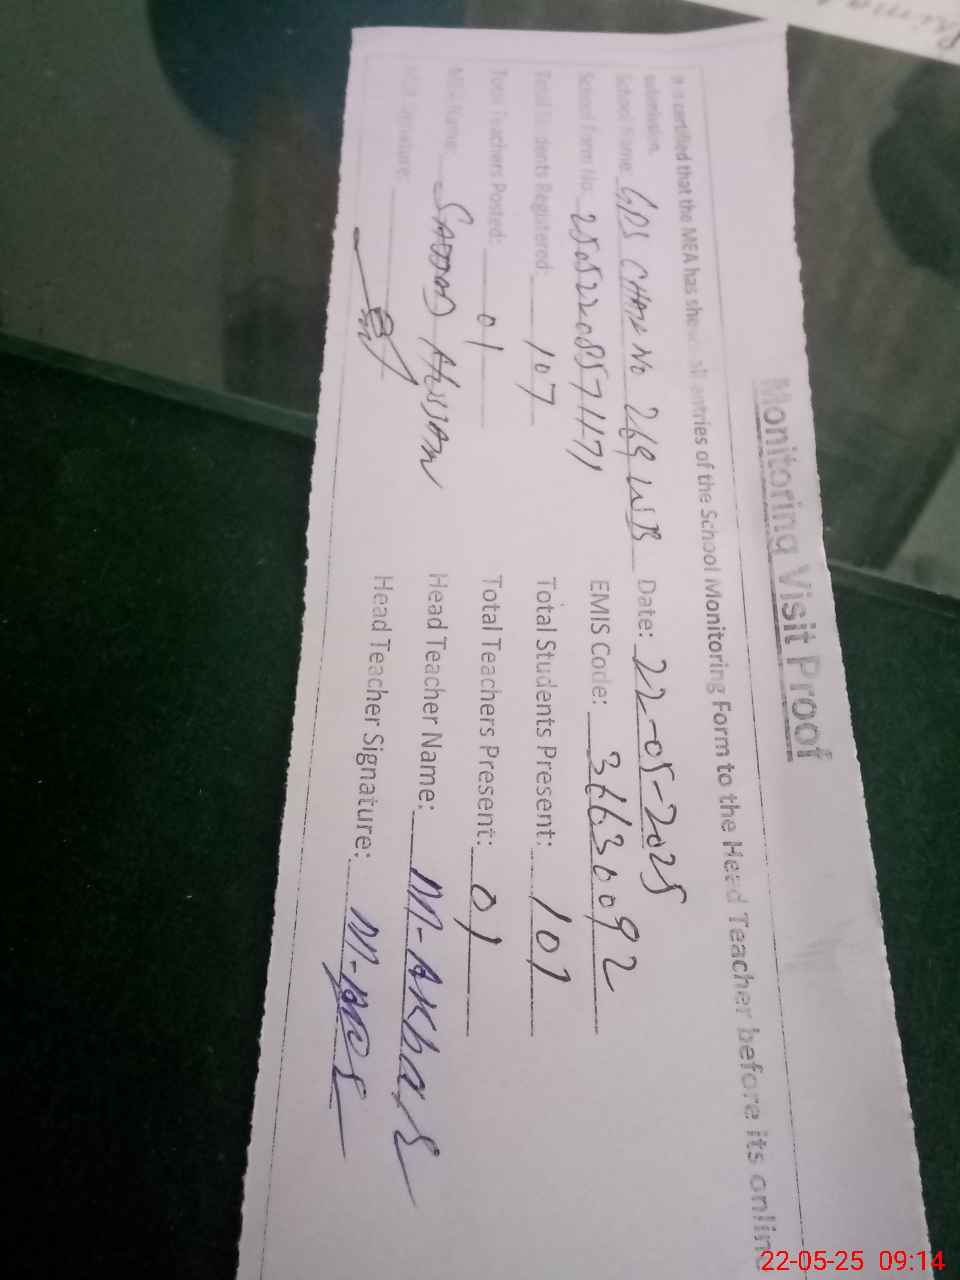 Monitoring Visit Proof
It is certified that the MEA has shown all entries of the School Monitoring Form to the Head Teacher before its online
submission.
School Name: GPS CHAK No 269 WB Date: 22-05-2025
School Form No. EMIS Code: 36630092
Total Students Registered: 107 Total Students Present: 107
Total Teachers Posted: 01 Total Teachers Present: 01
MEA Name: SADDAD HUSSAN Head Teacher Name: M-AKbar
MEA Signature: Head Teacher Signature:
22-05-25 09:14